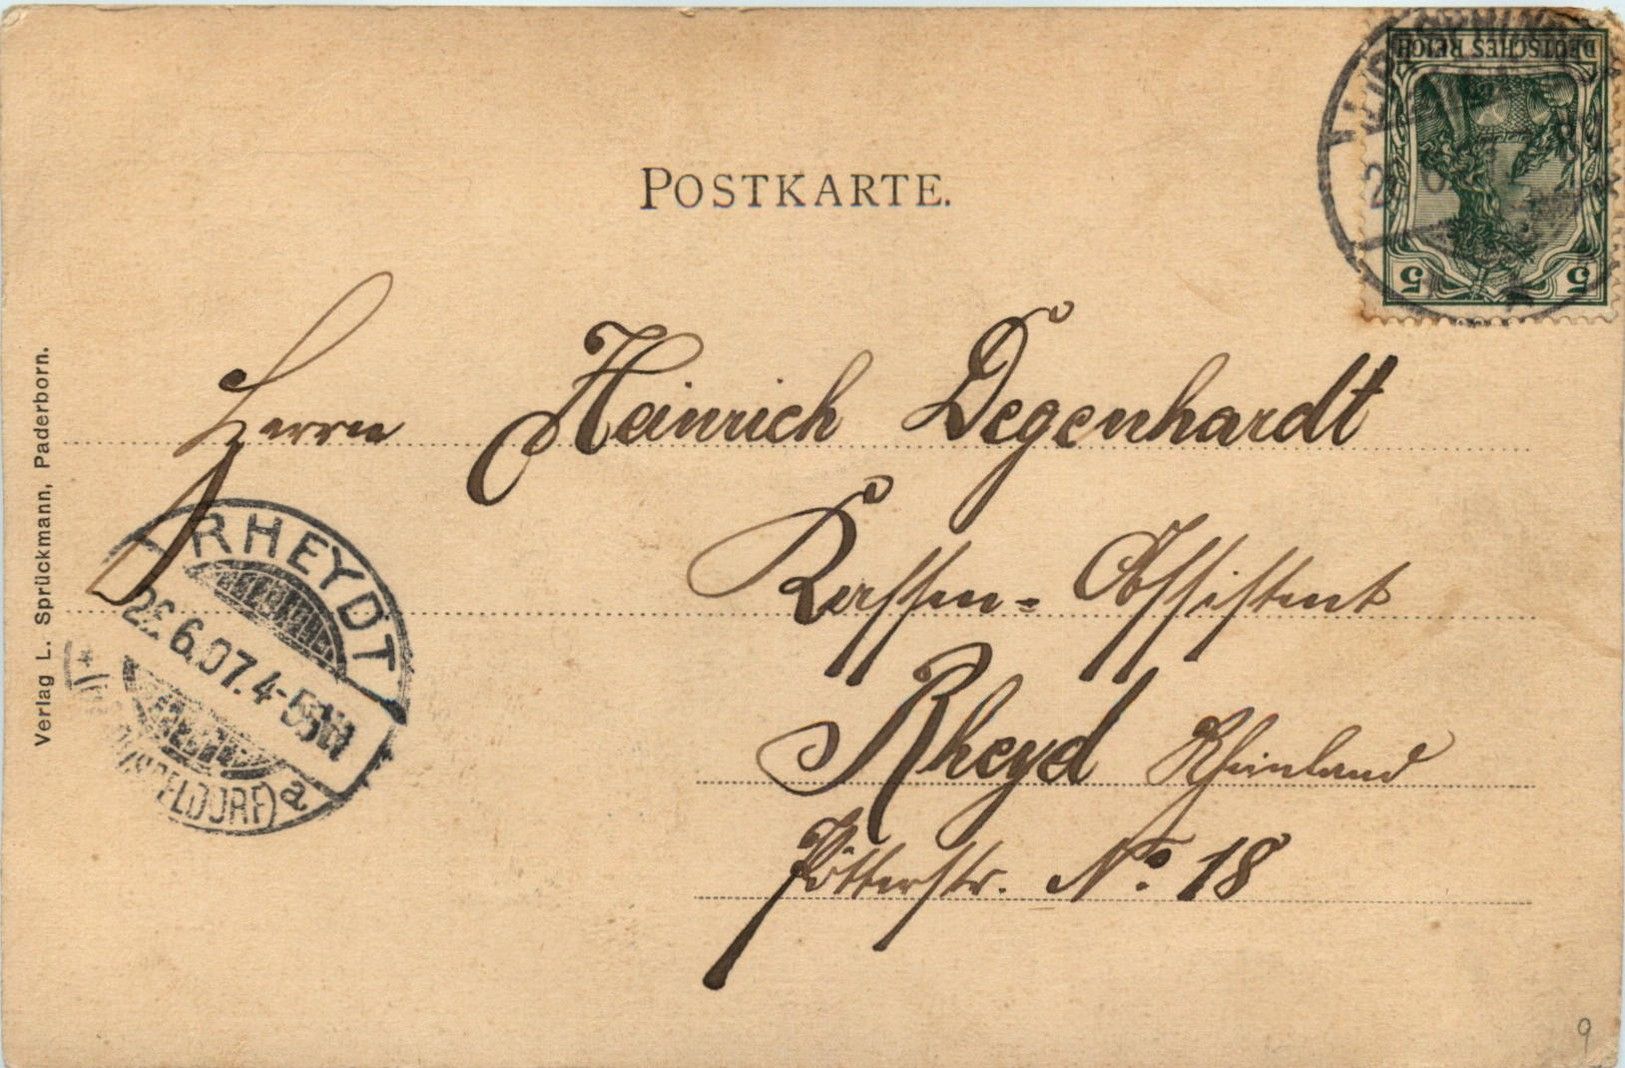 POSTKARTE.
DEUTSCHES REICH
5 5
Herrn Heinrich Degenhardt
Kassen-Assistent
Rheyd Rheinland
Pötterstr. No. 18
RHEYDT
6.07.4-5
a
Verlag L. Sprückmann, Paderborn.
9